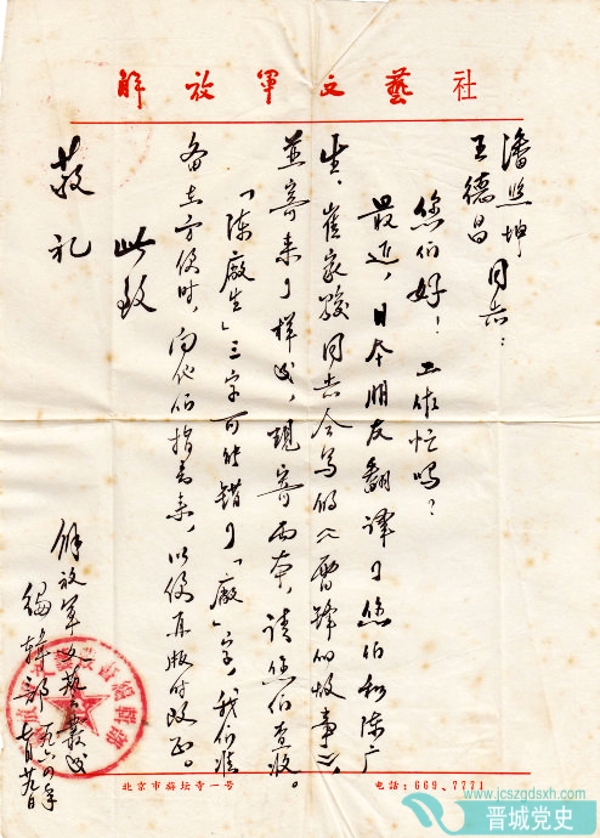 解放军文藝社
潘照坤
王德昌 同志：
您们好！工作忙吗？
最近，日本朋友翻译了您们和陈广
生、崔家骏同志合写的《雷锋的故事》，
并寄来了样书，现寄两本，请您们查收。
「陈廠生」三字可能错了「廠」字，我们准
备在方便时，向他们指出来，以便再版时改正。
此致
敬礼
解放军文艺丛書
编辑部
一九六四年
七月廿九日
北京市旃坛寺一号
电话：669、7771
www.jcszgdsxh.com
晋城党史